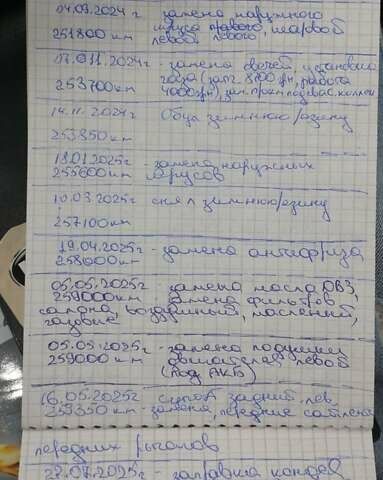 04.09.2024г - замена наружного
251800 км шруса правого, шаровой
левой левого
07.011.2024г - замена свечей, установка
253700 км газа (запч. 8700 грн, работа
4000 грн), зам.
14.11.2024г Обул зимнюю резину
253850 км
18.01.2025г - замена наружных
255600 км шрусов
10.03.2025г снял зимнюю резину
257100 км
19.04.2025г - замена антифриза
258600 км
05.05.2025г - замена масла ДВЗ,
259000 км замена фильтров
салона, воздушный, масленный,
газовые
05.05.2025г - замена подушки
259000 км двигателя левой
(под АКБ)
16.05.2025г - суппорт задний лев.
259350 км - замена, передние сайлен
передних рычагов
22.07.2025г - заправка кондев